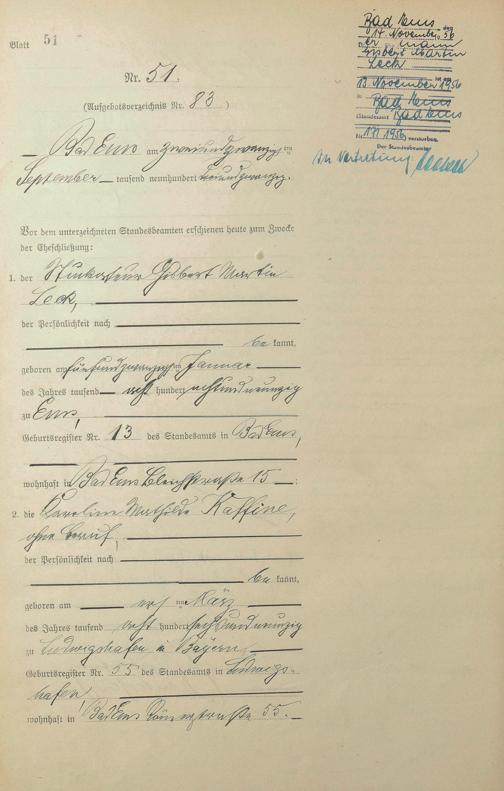 Blatt 51
Bad Ems, den
14. November 56
Der
Gisbert Martin
Leck
ist am
13. November 1956
in Bad Ems
(Standesamt Bad Ems
Nr. 171/1956) verstorben.
Der Standesbeamte
In Vertretung
Nr. 51.
(Aufgebotsverzeichnis Nr. 83)
Bad Ems am zweiundzwanzigsten
September tausend neunhundert
Vor dem unterzeichneten Standesbeamten erschienen heute zum Zwecke
der Eheschließung:
1. der Stukkateur Gisbert Martin
Leck,
der Persönlichkeit nach
be kannt,
geboren am fünfundzwanzigsten Januar
des Jahres tausend acht hundert achtundneunzig
zu Ems,
Geburtsregister Nr. 13 des Standesamts in Bad Ems,
wohnhaft in Bad Ems Bleichstraße 15;
2. die Karoline Mathilde Kaffine,
ohne Beruf,
der Persönlichkeit nach
be kannt,
geboren am März
des Jahres tausend acht hundert sechsundneunzig
zu Ludwigshafen in Bayern,
Geburtsregister Nr. 55 des Standesamts in Ludwigs-
hafen
wohnhaft in Bad Ems Römerstraße 55.